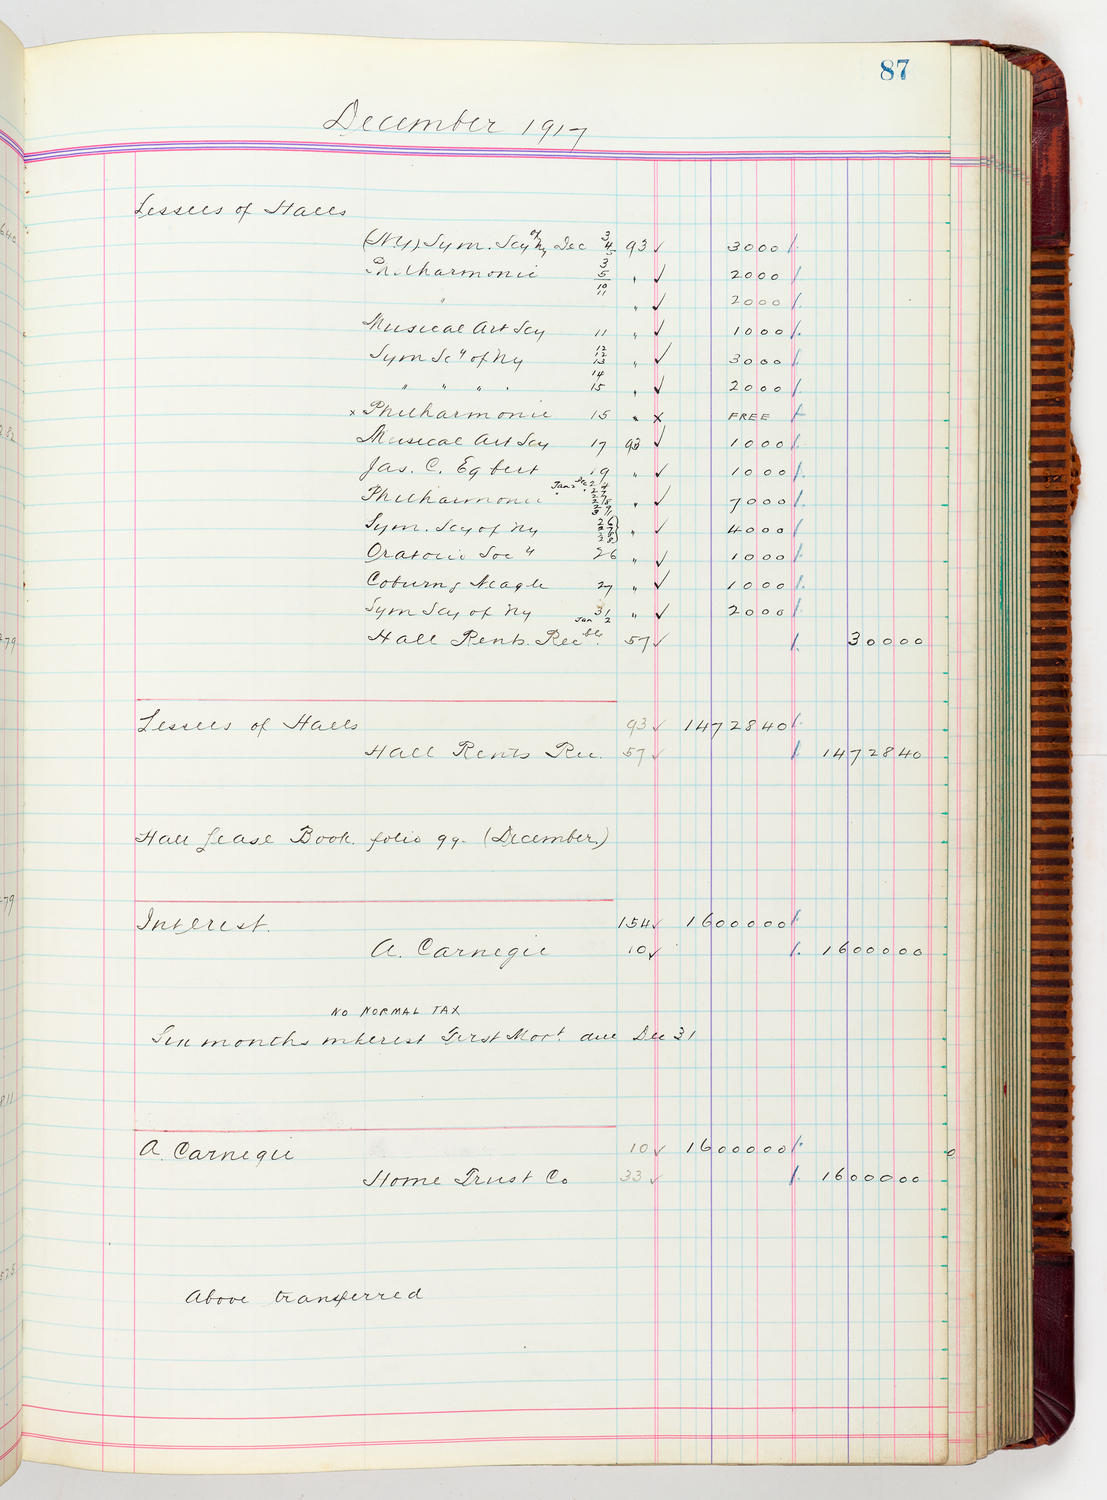 87
December 1917
Lessees of Halls
(N.Y.) Sym. Scy of Ny Dec 3 4 5 93 ✓ 3000
Philharmonic 3 5 " ✓ 2000
" 10 11 " ✓ 2000
Musical Art Scy 11 " ✓ 1000
Sym Scy of Ny 12 12 13 " ✓ 3000
" " " " 14 15 " ✓ 2000
x Philharmonic 15 " x FREE
Musical Art Scy 17 93 ✓ 1000
Jas. C. Egbert 19 " ✓ 1000
Philharmonic Jan 2 " ✓ 7000
Sym. Scy of Ny 26 27 28 " ✓ 4000
Oratorio Soc y 26 " ✓ 1000
Coburn & Neagle 27 " ✓ 1000
Sym Scy of Ny 31 Jan 2 " ✓ 2000
Hall Rents. Rec ble. 57 ✓ 30000
Lessees of Halls 93 ✓ 1472840
Hall Rents Rec. 57 ✓ 1472840
Hall Lease Book. folio 99. (December)
Interest. 154 ✓ 1600000
A. Carnegie 10 ✓ 1600000
NO NORMAL TAX
Six months interest First Mort. due Dec 31
A. Carnegie 10 ✓ 1600000
Home Trust Co 33 ✓ 1600000
Above transferred